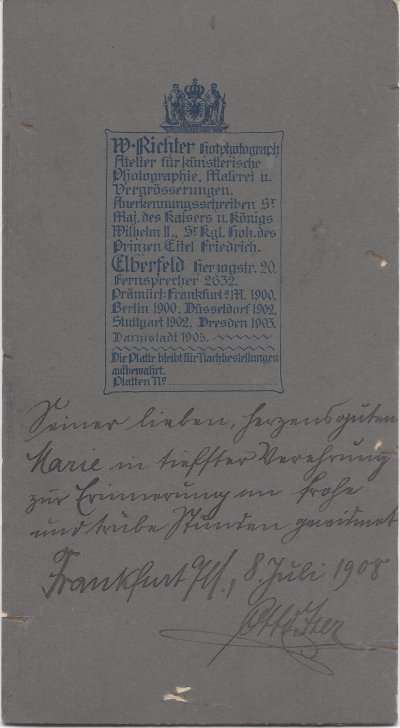 W. Richter Hofphotograph
Atelier für künstlerische
Photographie, Malerei u.
Vergrösserungen.
Anerkennungsschreiben Sr.
Maj. des Kaisers u. Königs
Wilhelm II., Sr. Kgl. Hoh. des
Prinzen Eitel Friedrich.
Elberfeld Herzogstr. 20.
Fernsprecher 2632.
Prämiirt: Frankfurt a/M. 1900,
Berlin 1900, Düsseldorf 1902,
Stuttgart 1902, Dresden 1903.
Darmstadt 1905.
Die Platte bleibt für Nachbestellungen
aufbewahrt.
Platten No
Seiner lieben, herzensguten
Marie in tiefster Verehrung
zur Erinnerung an frohe
und trübe Stunden gewidmet
Frankfurt a/M., 8. Juli 1908
Otto